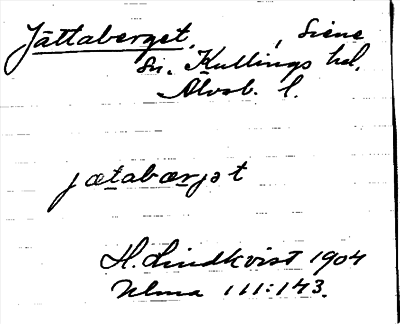 Jättaberget, , Siene
Sn. Kullings hd.
Älvsb. l.
jætabærjət
H. Lindkvist 1904
Ulma 111:143.